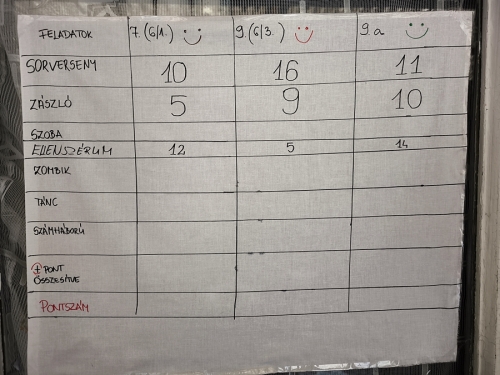 FELADATOK 7.(6/1.) 9.(6/3.) 9.a
SORVERSENY 10 16 11
ZÁSZLÓ 5 9 10
SZOBA
ELLENSZÉRUM 12 5 14
ZOMBIK
TÁNC
SZÁMHÁBORÚ
+ PONT
ÖSSZESÍTVE
PONTSZÁM